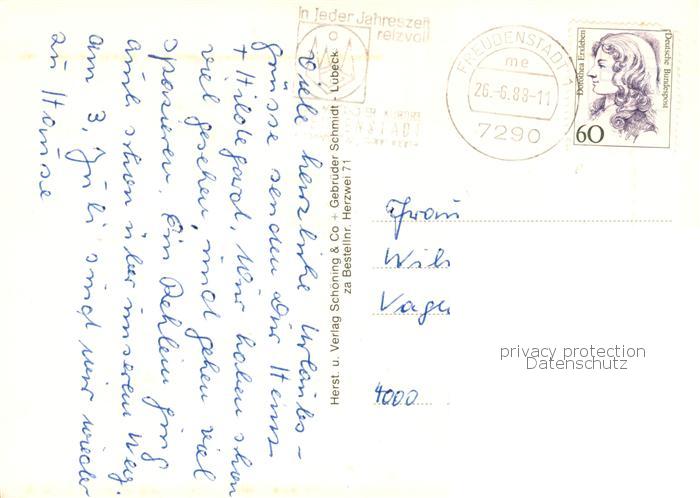 Viele herzliche Urlaubs-
grüsse senden Dir Heinz
+ Hildegard. Wir haben schon
viel gesehen, und gehen viel
spazieren. Ein Rehlein ging
auch schon über unseren Weg.
Am 3. Juli sind wir wieder
zu Hause
Herst. u. Verlag Schöning & Co + Gebrüder Schmidt - Lübeck
za Bestellnr. Herzwei 71
in jeder Jahreszeit
reizvoll
FREUDENSTADT 1
me
26.-6.88-11
7290
Dorothea Erxleben
Deutsche Bundespost
60
Frau
4000
privacy protection
Datenschutz